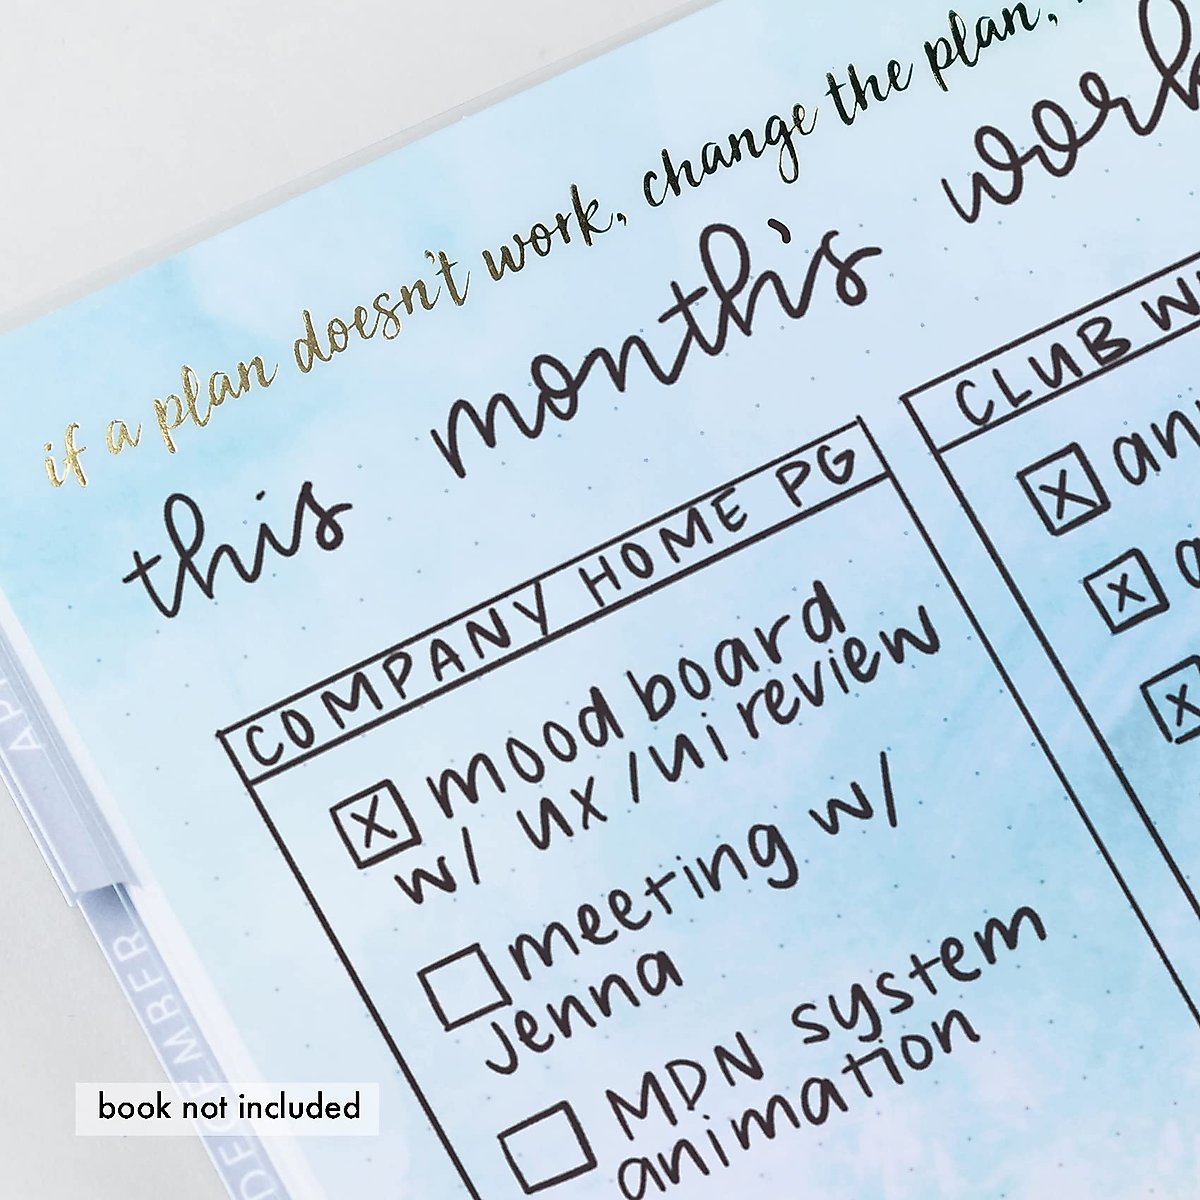 if a plan doesn't work, change the plan,
this month's work
COMPANY HOME PG
mood board
w/ ux/ui review
meeting w/
Jenna
MDN system
animation
CLUB
an
a
DECEMBER
book not included